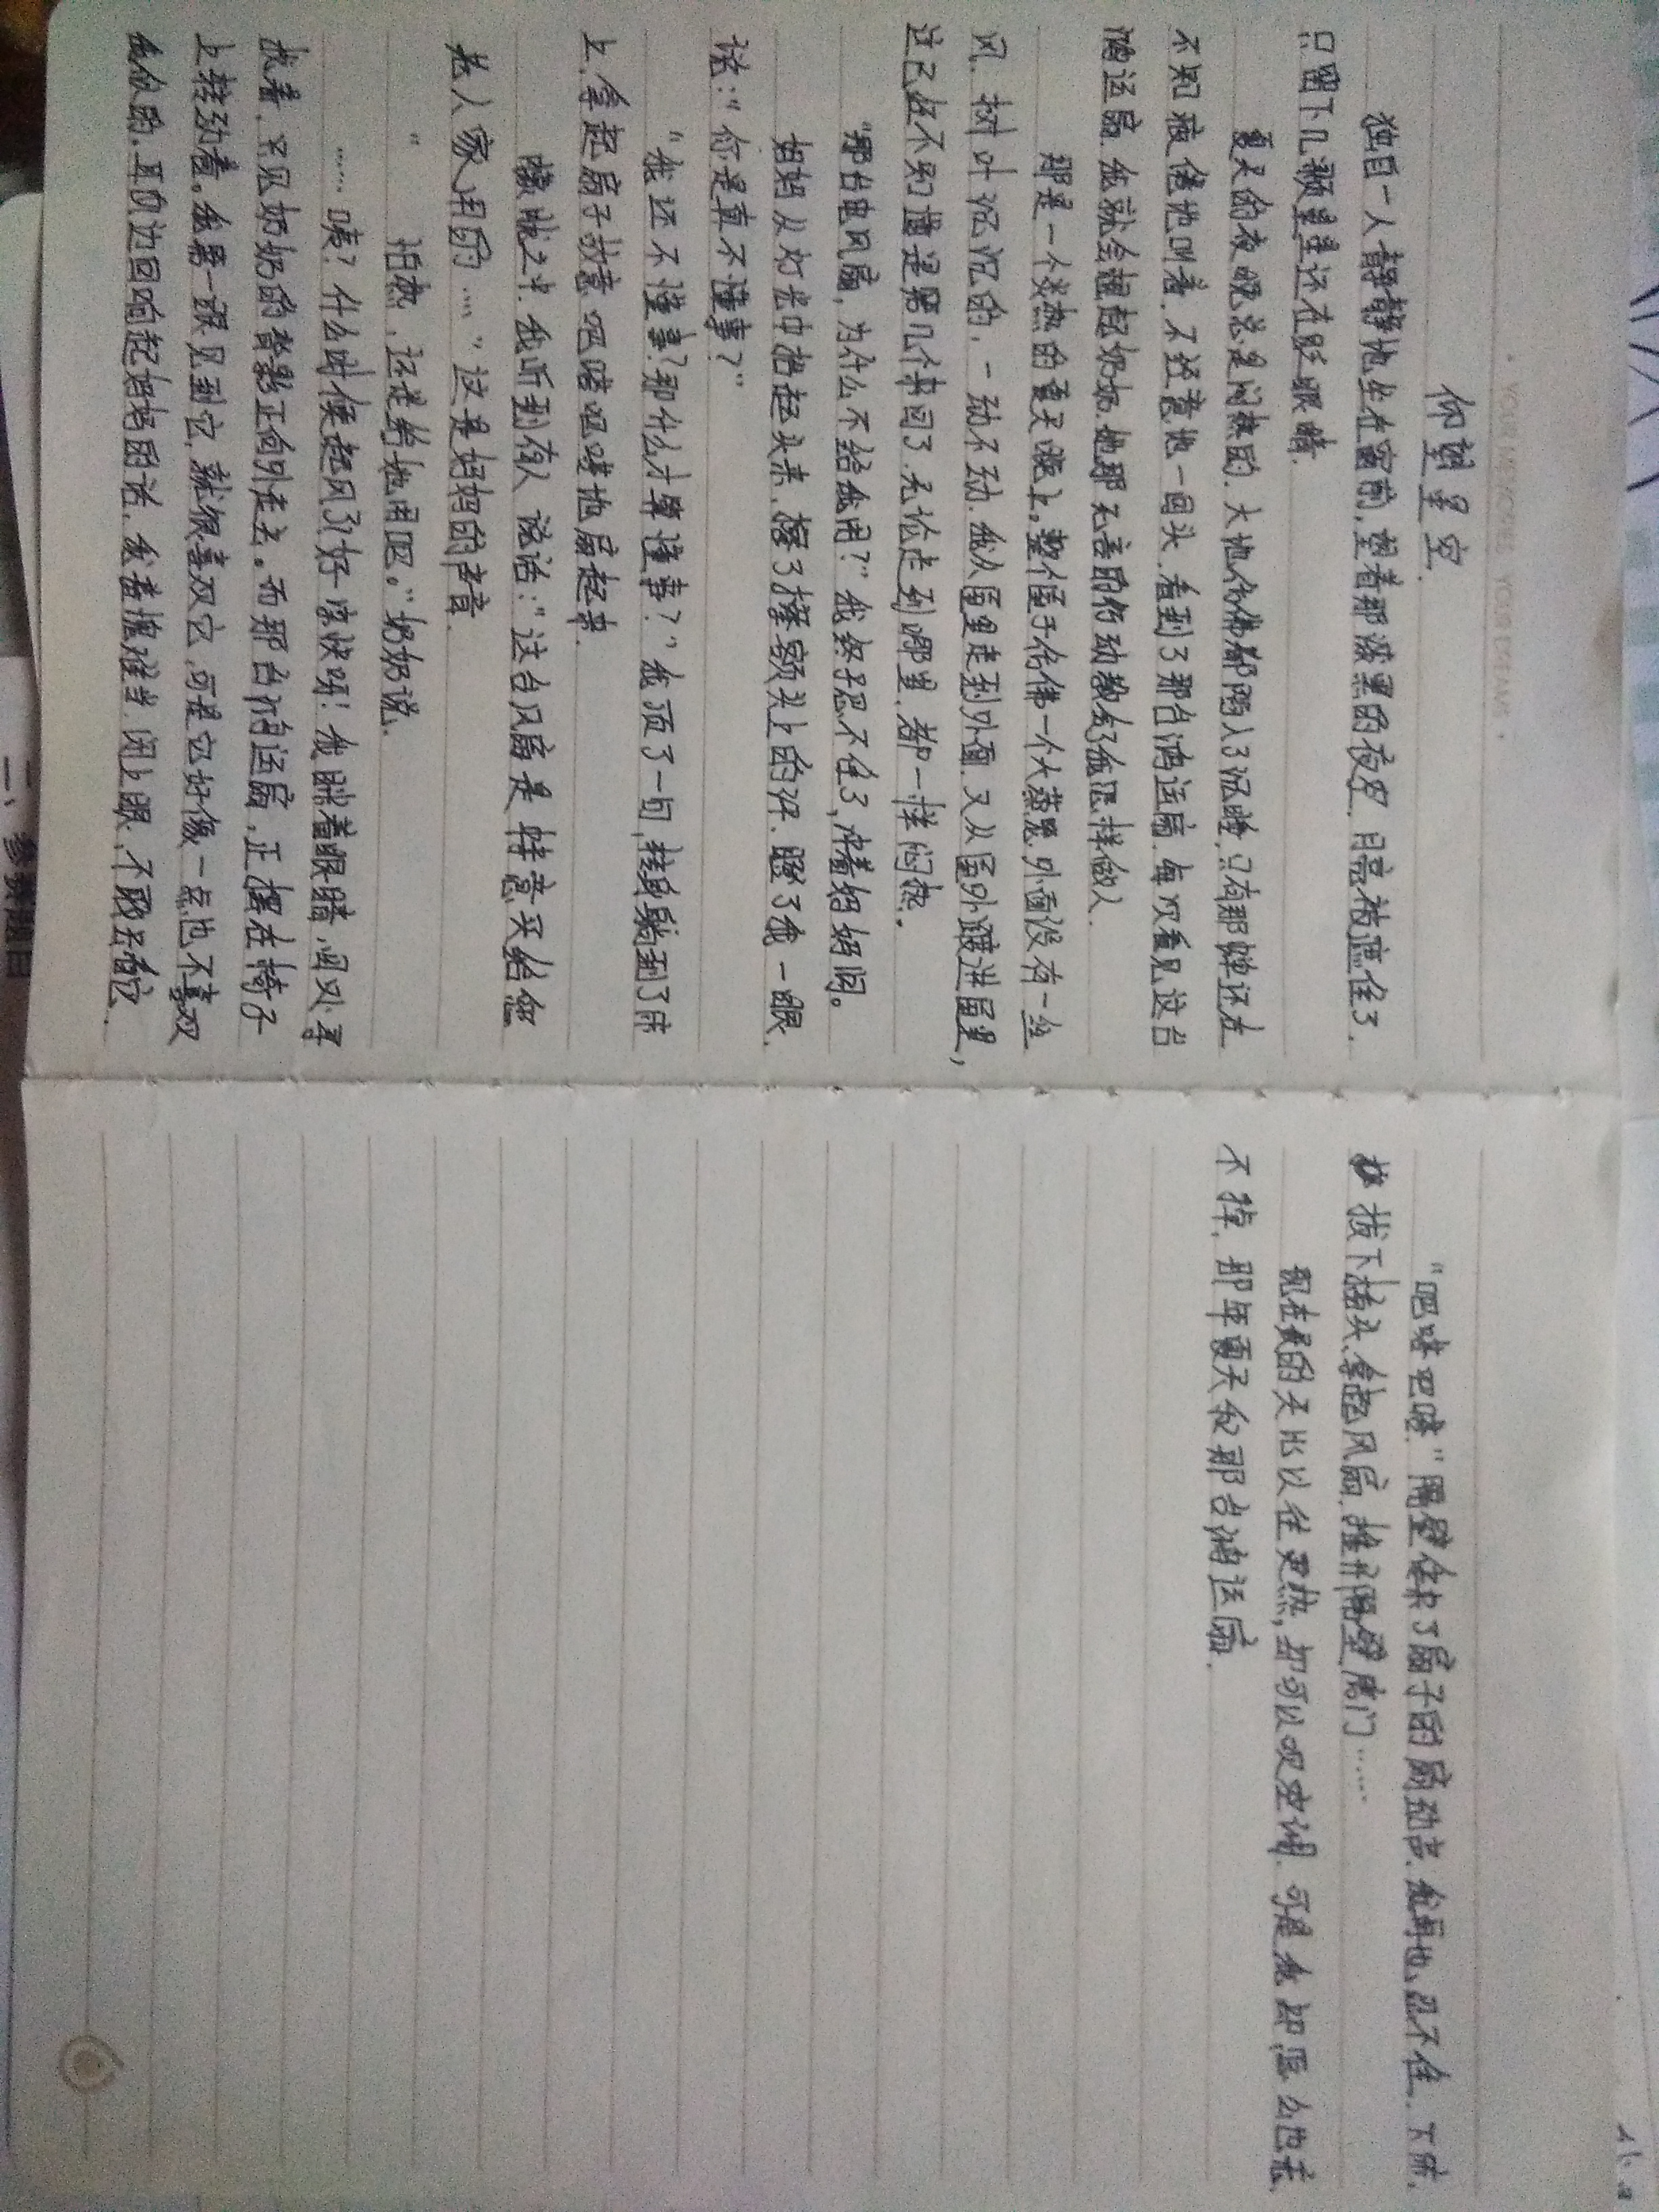 · YOUR MEMORIES YOUR DREAMS ·
仰望星空.
独自一人静静地坐在窗前,望着那漆黑的夜空,月亮被遮住了.
只留下几颗星星还在眨眼睛.
夏天的夜晚总是闷热的.大地仿佛都陷入了沉睡,只有那蝉还在
不知疲倦地叫着.不经意地一回头,看到了那台鸿运扇.每次看见这台
鸿运扇.我就会想起奶奶.她那无言的行动教给了我怎样做人.
那是一个炎热的夏天晚上。整个屋子仿佛一个大蒸笼.外面没有一丝
风.树叶沉沉的.一动不动.我从屋里走到外面.又从屋外踱进屋里,
这已经不知道是第几个来回了.无论走到哪里,都一样闷热。
“那台电风扇,为什么不给我用?”我终于忍不住了,冲着妈妈问。
妈妈从灯光中抬起头来,擦了擦额头上的汗.瞪了我一眼.
说:“你是真不懂事?”
“我还不懂事?那什么才算懂事?”我顶了一句,转身躺到了床
上.拿起扇子故意吧嗒吧嗒地扇起来.
朦胧之中.我听到有人说话:“这台风扇是特意买给您
老人家用的……”这是妈妈的声音.
“ 怕热,还是给她用吧。”奶奶说.
……咦?什么时候起风了?好凉快呀!我眯着眼睛,四处寻
找着.只见奶奶的背影正向外走去。而那台鸿运扇,正摆在椅子
上转动着。我第一眼见到它.就很喜欢它,可是它好像一点也不喜欢
我似的.耳的边回响起妈妈的话.我羞愧难当.闭上眼,不敢去看它.
“吧嗒吧嗒.”隔壁传来了扇子的扇动声.我再也忍不住.下床.
拔下插头.拿起风扇.推开隔壁房门……
现在的天比以往更热,却可以吹空调.可是我却怎么也忘
不掉.那年夏天和那台鸿运扇.
二、参赛题目